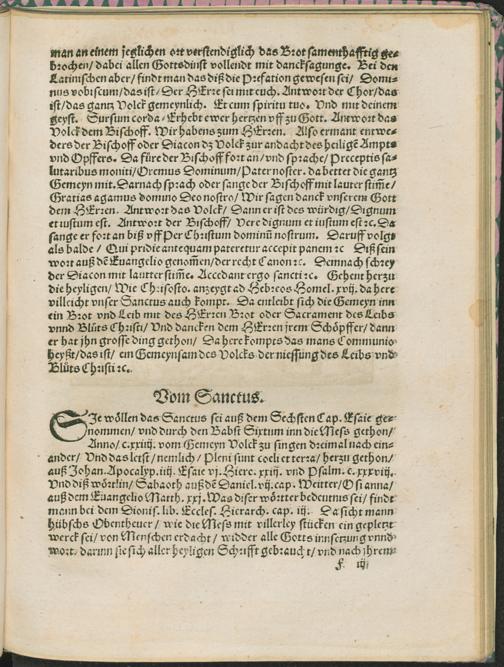 man an einem jeglichen ort verstendiglich das Brot samenthafftig ge⸗
brochen/ dabei allen Gottsdinst vollendt mit dancksagunge. Bei den
Latinischen aber/ findt man das diß die Prefation gewesen sei/ Domi⸗
nus vobiscum/das ist/ Der HErre sei mit euch. Antwort der Chor/das
ist/das gantz Volck gemeynlich. Et cum spiritu tuo. Vnd mit deinem
geyst. Sursum corda/ Erhebt ewer hertzen vff zu Gott. Antwort das
Volck dem Bischoff. Wir habens zum HErren. Also ermant entwe⸗
ders der Bischoff oder Diacon dz Volck zur andacht des heiligē Ampts
vnd Opffers. Da füre der Bischoff fort an/ vnd sprache/ Preceptis sa⸗
lutaribus moniti/Oremus Dominum/Pater noster. da bettet die gantz
Gemeyn mit. Darnach sprach oder sange der Bischoff mit lauter stim̃e/
Gratias agamus domino Deo nostro/ Wir sagen danck vnserem Gott
dem HErren. Antwort das Volck/ Dann er ist des würdig/ Dignum
et iustum est. Antwort der Bischoff/ Vere dignum et iustum est ꝛc. Da
sange er fort an biß vff Per Christum dominū nostrum. Daruff volgt
als balde/ Qui pridie antequam pateretur accepit panem ꝛc Diß sein
wort auß dē Euangelio genom̃en/der recht Canon ꝛc. Demnach schrey
der Diacon mit lautter stim̃e. Accedant ergo sancti ꝛc. Gehent herzu
die heyligen/ Wie Chrisosto. anzeygt ad Hebreos Homel. xvij. da here
villeicht vnser Sanctus auch kompt. Da entleibt sich die Gemeyn inn
ein Brot vnd Leib mit des HErren Brot oder Sacrament des Leibs
vnnd Blůts Christi/ Vnd dancken dem HErren jrem Schöpffer/ dann
er hat jhn grosse ding gethon/ Da here kompts das mans Communio
heyßt/das ist/ ein Gemeynsam des Volcks der niessung des Leibs vnd⸗
Blůts Christi ꝛc.
Vom Sanctus.
SIe wöllen das Sanctus sei auß dem Sechsten Cap. Esaie ge⸗
nommen/ vnd durch den Babst Sixtum inn die Mess gethon/
Anno/ c.xxiiij. vom Gemeyn Volck zu singen dreimal nach ein⸗
ander/ Vnd das letst/ nemlich/ Pleni sunt coeli et terra/ herzu gethon/
auß Johan. Apocalyp. iiij. Esaie vj. Hiere. xxiij. vnd Psalm. c. xxxviij.
Vnd diß wörtlin/ Sabaoth auß dē Daniel. vij. cap. Weitter/ Osianna/
auß dem Euangelio Matth. xxj. Was diser wötter bedeutnus sei/ findt
mann bei dem Dionis. lib. Eccles. Hierarch. cap. iij. Da sicht mann
hübschs Obentheuer/ wie die Mess mit villerley stücken ein gepletzt
werck sei/ von Menschen erdacht/ widder alle Gotts innsetzung vnnd⸗
wort. darinn sie sich aller heyligen Schrifft gebraucht/ vnd nach jhrem⸗
f. iij